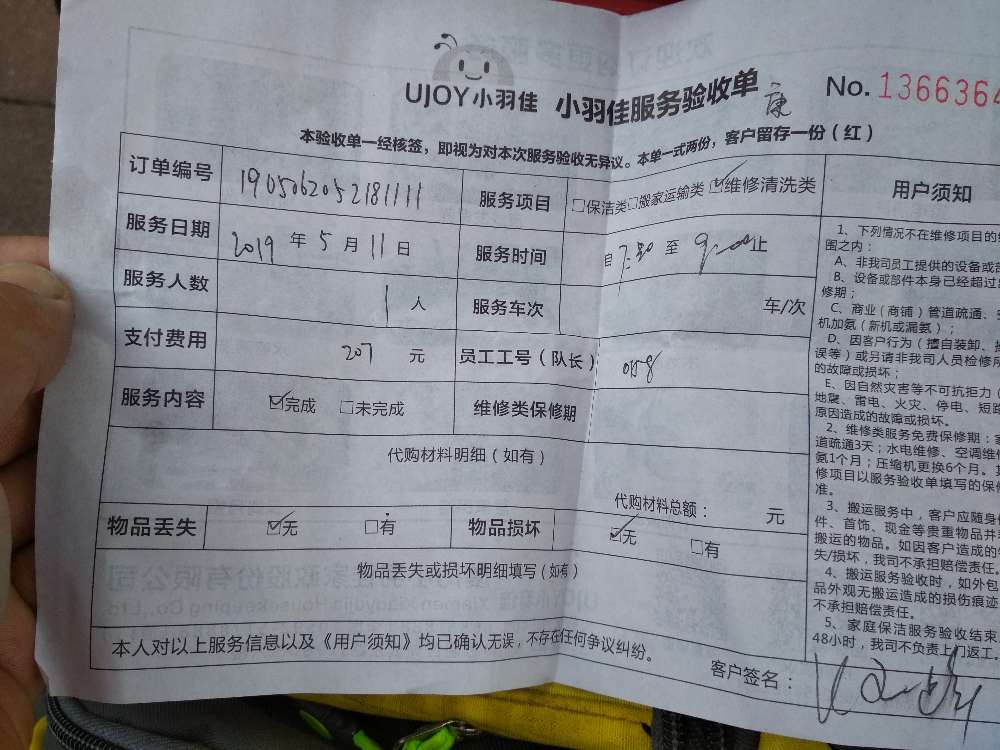 UJOY小羽佳 小羽佳服务验收单 康 No. 1366364
本验收单一经核签，即视为对本次服务验收无异议。本单一式两份，客户留存一份（红）
订单编号 1905062052181111 服务项目 □保洁类□搬家运输类☑维修清洗类
服务日期 2019 年 5 月 11 日 服务时间 自 7:30 至 9:00 止
服务人数 1 人 服务车次 车/次
支付费用 207 元 员工工号（队长） 0158
服务内容 ☑完成 □未完成 维修类保修期
代购材料明细（如有）
代购材料总额： 元
物品丢失 ☑无 □有 物品损坏 ☑无 □有
物品丢失或损坏明细填写（如有）
本人对以上服务信息以及《用户须知》均已确认无误，不存在任何争议纠纷。
客户签名：
用户须知
1、下列情况不在维修项目的
围之内：
A、非我司员工提供的设备或
B、设备或部件本身已经超过
修期；
C、商业（商铺）管道疏通、
机加氨（新机或漏氨）；
D、因客户行为（擅自装卸、
误等）或另请非我司人员检修所
的故障或损坏；
E、因自然灾害等不可抗拒力（
地震、雷电、火灾、停电、短路
原因造成的故障或损坏。
2、维修类服务免费保修期：
道疏通3天；水电维修、空调维
氨1个月；压缩机更换6个月。
修项目以服务验收单填写的保
准。
3、搬运服务中，客户应随身
件、首饰、现金等贵重物品并
搬运的物品。如因客户造成的
失/损坏，我司不承担赔偿责任。
4、搬运服务验收时，如外包
品外观无搬运造成的损伤痕迹
不承担赔偿责任。
5、家庭保洁服务验收结束
48小时，我司不负责上门返工。